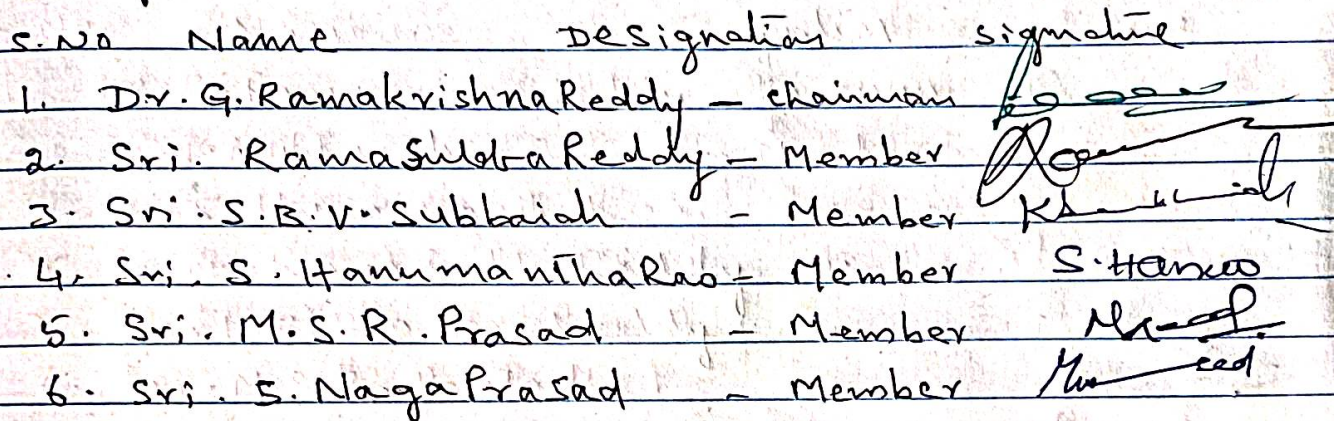 S.No Name Designation Signature
1. Dr. G. Ramakrishna Reddy - chairman
2. Sri. Rama Reddy - Member
3. Sri. S.B.V. Subbaiah - Member
4. Sri. S. Hanumantha Rao - Member S. Hanu
5. Sri. M.S.R. Prasad - Member
6. Sri. S. Naga Prasad - Member